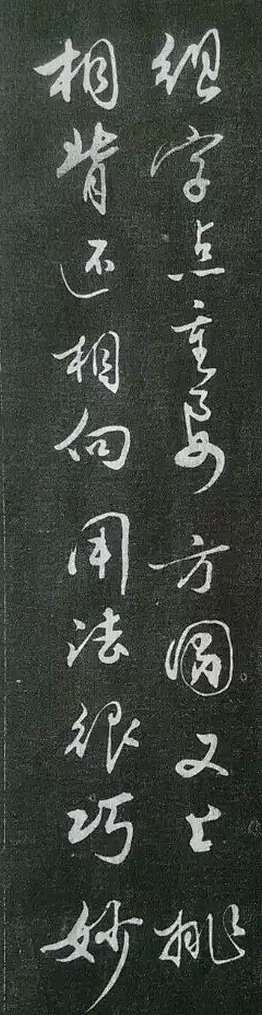 组字点重要方圆又上挑
相背还相向用法很巧妙